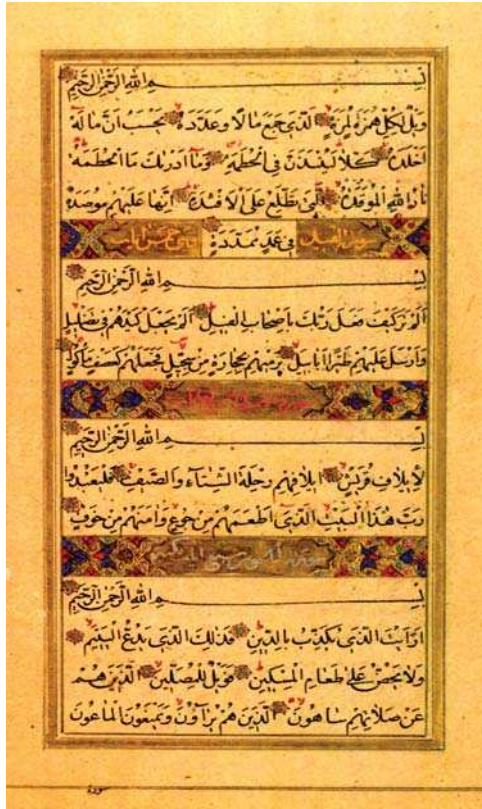 بِسْمِ اللهِ الرَّحْمٰنِ الرَّحِيمِ
وَيْلٌ لِكُلِّ هُمَزَةٍ لُمَزَةٍ الَّذِي جَمَعَ مَالًا وَعَدَّدَهُ يَحْسَبُ أَنَّ مَالَهُ
أَخْلَدَهُ كَلَّا لَيُنْبَذَنَّ فِي الْحُطَمَةِ وَمَا أَدْرٰىكَ مَا الْحُطَمَةُ
نَارُ اللهِ الْمُوقَدَةُ الَّتِي تَطَّلِعُ عَلَى الْأَفْئِدَةِ إِنَّهَا عَلَيْهِمْ مُوصَدَةٌ
سورة الفيل فِي عَمَدٍ مُمَدَّدَةٍ وهي خمس آيات
بِسْمِ اللهِ الرَّحْمٰنِ الرَّحِيمِ
أَلَمْ تَرَ كَيْفَ فَعَلَ رَبُّكَ بِأَصْحَابِ الْفِيلِ أَلَمْ يَجْعَلْ كَيْدَهُمْ فِي تَضْلِيلٍ
وَأَرْسَلَ عَلَيْهِمْ طَيْرًا أَبَابِيلَ تَرْمِيهِمْ بِحِجَارَةٍ مِنْ سِجِّيلٍ فَجَعَلَهُمْ كَعَصْفٍ مَأْكُولٍ
سورة
بِسْمِ اللهِ الرَّحْمٰنِ الرَّحِيمِ
لِإِيلَافِ قُرَيْشٍ إِيلَافِهِمْ رِحْلَةَ الشِّتَاءِ وَالصَّيْفِ فَلْيَعْبُدُوا
رَبَّ هٰذَا الْبَيْتِ الَّذِي أَطْعَمَهُمْ مِنْ جُوعٍ وَآمَنَهُمْ مِنْ خَوْفٍ
بِسْمِ اللهِ الرَّحْمٰنِ الرَّحِيمِ
أَرَأَيْتَ الَّذِي يُكَذِّبُ بِالدِّينِ فَذٰلِكَ الَّذِي يَدُعُّ الْيَتِيمَ
وَلَا يَحُضُّ عَلَى طَعَامِ الْمِسْكِينِ فَوَيْلٌ لِلْمُصَلِّينَ الَّذِينَ هُمْ
عَنْ صَلَاتِهِمْ سَاهُونَ الَّذِينَ هُمْ يُرَاؤُنَ وَيَمْنَعُونَ الْمَاعُونَ
سورة